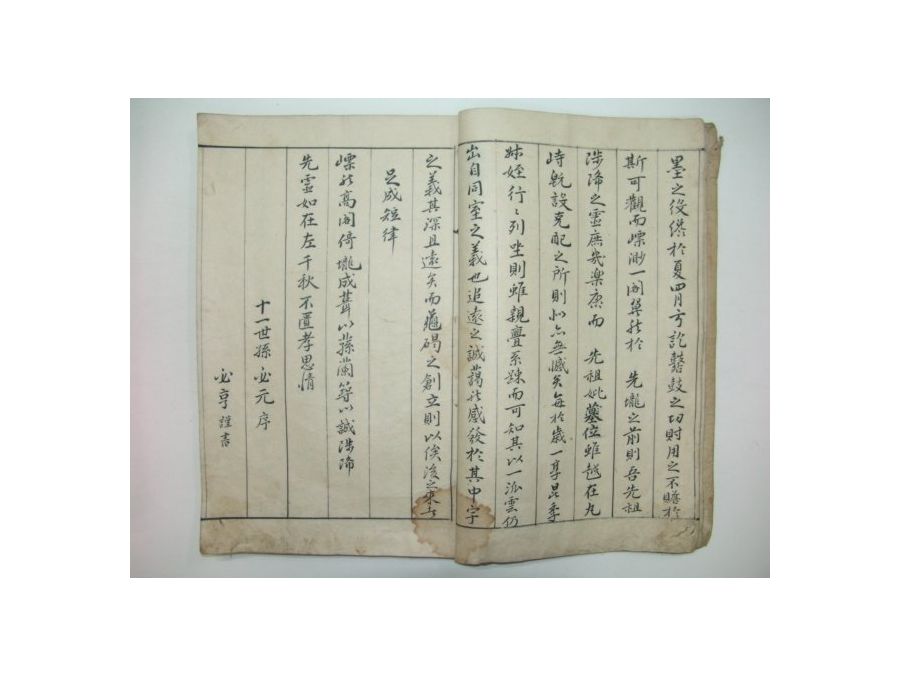 墨之役始於夏四月方訖鼛鼓之功財用之不贍於
斯可觀而嶫渺一閣巋然於 先壠之前則吾先祖
陟降之靈庶幾樂康而 先祖妣墓位雖越在九
峙旣設克配之所則似亦無憾矣每於歲一享昆季
姊姪行〻列坐則雖親疊系踈而可知其以一派雲仍
出自同室之義也追遠之誠藹然感發於其中字
之義其深且遠矣而龜碣之創立則以俟後之來者
足成短律
嶫然高閣倚壠成葺以蓀蘭籌以誠陟降
先靈如在左千秋不匱孝思情
十一世孫 必元 序
必亨 謹書